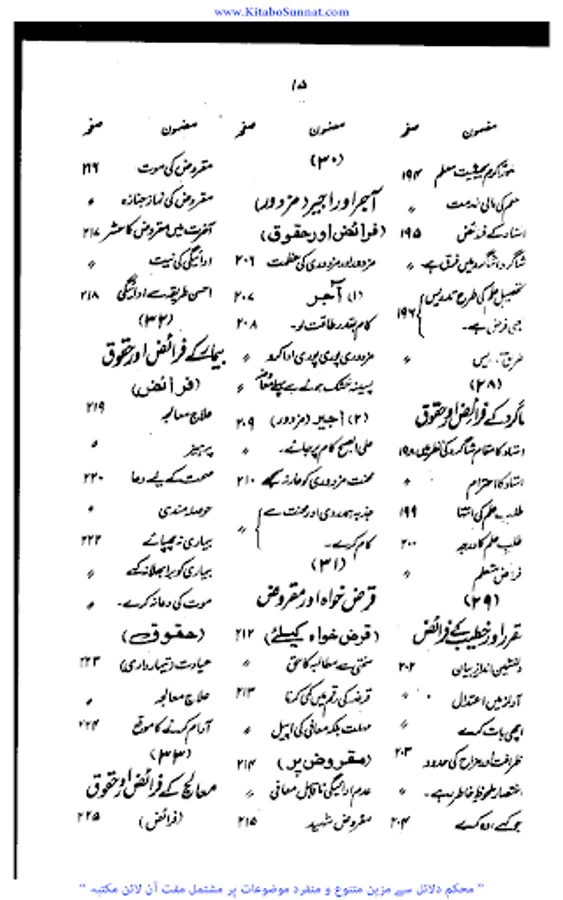 www.KitaboSunnat.com
۱۵
مضمون صفحہ
معلم ۱۹۴
معلم کی مالی خدمت 〃
استاد کے فرائض ۱۹۵
شاگرد شاگرد میں فرق ہے۔ 〃
تحصیل علم کی طرح تدریس
بھی فرض ہے۔ ۱۹۶
طریق تدریس 〃
(۲۸)
شاگرد کے فرائض اور حقوق
استاد کا مقام شاگرد کی نظر میں ۱۹۸
استاد کا احترام 〃
طلب علم کی انتہا ۱۹۹
طلب علم کا درجہ ۲۰۰
فرائض متعلم 〃
(۲۹)
مقرر اور خطیب کے فرائض
دلنشین انداز بیان ۲۰۲
آواز میں اعتدال 〃
اچھی بات کرے 〃
ظرافت اور مزاح کی حدود ۲۰۳
اختصار ملحوظ خاطر رہے۔ 〃
جو کہے، وہ کرے ۲۰۴
مضمون صفحہ
(۳۰)
آجر اور اجیر (مزدور)
(فرائض اور حقوق)
مزدور اور مزدوری کی عظمت ۲۰۶
(۱) آجر ۲۰۷
کام بقدر طاقت لو۔ ۲۰۸
مزدوری پوری پوری ادا کرو 〃
پسینہ خشک ہونے سے پہلے معاوضہ 〃
(۲) اجیر (مزدور) ۲۰۹
علی الصبح کام پر جائے۔ 〃
محنت مزدوری کو عار نہ سمجھے ۲۱۰
جذبہ ہمدردی اور محنت سے
کام کرے۔ 〃
(۳۱)
قرض خواہ اور مقروض
(قرض خواہ کیلئے) ۲۱۲
سختی سے مطالبہ کا حق 〃
قرضہ کی رقم میں کمی کرنا ۲۱۳
مہلت بلکہ معافی کی اپیل 〃
(مقروض پر) ۲۱۴
عدم ادائیگی ناقابل معافی 〃
مقروض شہید ۲۱۵
مضمون صفحہ
مقروض کی موت ۲۱۶
مقروض کی نماز جنازہ 〃
آخرت میں مقروض کا حشر ۲۱۷
ادائیگی کی نیت 〃
احسن طریقہ سے ادائیگی ۲۱۸
(۳۲)
بیمار کے فرائض اور حقوق
(فرائض)
علاج معالجہ ۲۱۹
پرہیز 〃
صحت کے لیے دعا ۲۲۰
حوصلہ مندی 〃
بیماری نہ چھپائے ۲۲۲
بیماری کو برا بھلا نہ کہے 〃
موت کی دعا نہ کرے۔ 〃
(حقوق)
عیادت (تیمارداری) ۲۲۳
علاج معالجہ 〃
آرام کرنے کا موقع ۲۲۴
(۳۳)
معالج کے فرائض اور حقوق
(فرائض) ۲۲۵
" محکم دلائل سے مزین متنوع و منفرد موضوعات پر مشتمل مفت آن لائن مکتبہ "